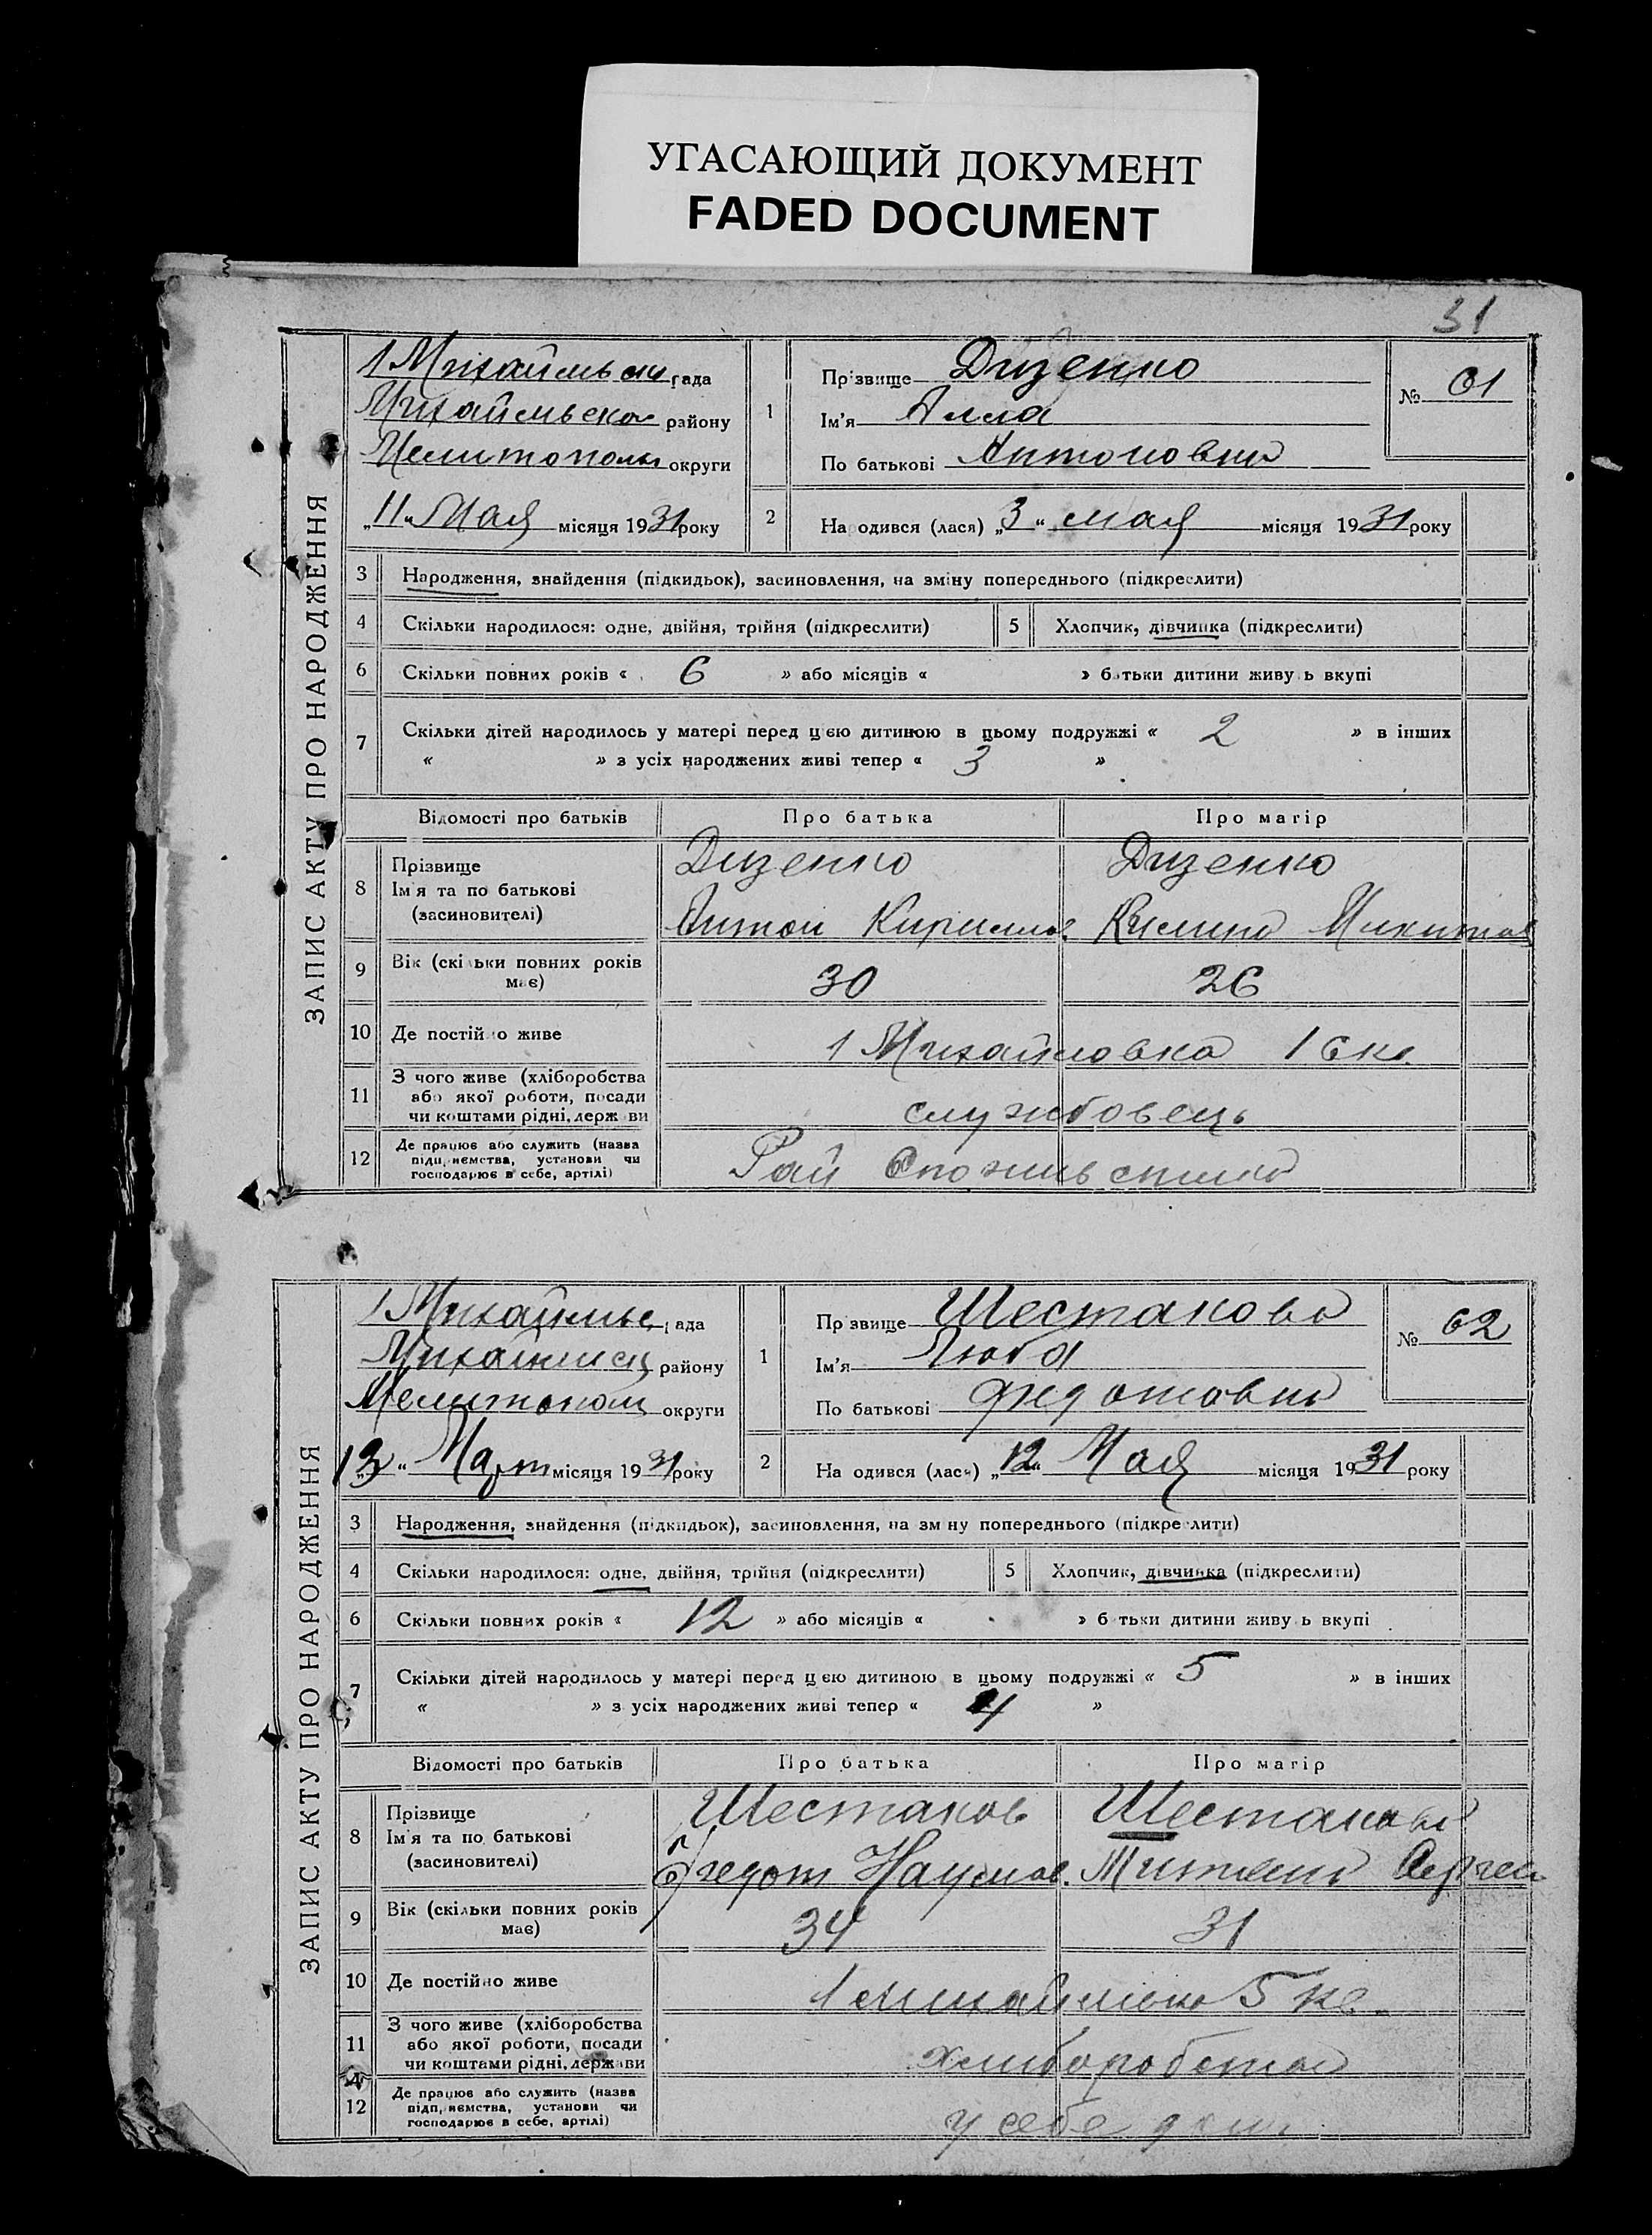 УГАСАЮЩИЙ ДОКУМЕНТ
FADED DOCUMENT
31
ЗАПИС АКТУ ПРО НАРОДЖЕННЯ
1 Михайльськ рада
Михайльська району
Мелитополь округи
„11“ Мая місяця 1931 року
1
Прізвище Дизенко
Ім'я Алла
По батькові Антоновна
№ 61
2
На одився (лася) „3“ мая місяця 1931 року
3 Народження, знайдення (підкидьок), засиновлення, на зміну попереднього (підкреслити)
4 Скільки народилося: одне, двійня, трійня (підкреслити) 5 Хлопчик, дівчинка (підкреслити)
6 Скільки повних років « 6 » або місяців « » батьки дитини живу ь вкупі
7 Скільки дітей народилось у матері перед цією дитиною в цьому подружжі « 2 » в інших
« » з усіх народжених живі тепер « 3 »
Відомості про батьків Про батька Про матір
8 Прізвище
Ім'я та по батькові
(засиновителі)
Дизенко Дизенко
Антон Кирилов. Килина Микитов
9 Вік (скільки повних років має) 30 26
10 Де постійно живе 1 Михайловка 1 скс
11 З чого живе (хліборобства
або якої роботи, посади
чи коштами рідні, держави
службовець
12 Де працює або служить (назва
підприємства, установи чи
господарює в себе, артілі)
Рай Споживспилка
ЗАПИС АКТУ ПРО НАРОДЖЕННЯ
1 Михайльс рада
району
Мелитополь округи
13 “ Март місяця 1931 року
1
Прізвище Шестакова
Ім'я Люба
По батькові Федотовна
№ 62
2
На одився (лася) „12“ Мая місяця 1931 року
3 Народження, знайдення (підкидьок), засиновлення, на зм ну попереднього (підкреслити)
4 Скільки народилося: одне, двійня, трійня (підкреслити) 5 Хлопчик, дівчинка (підкреслити)
6 Скільки повних років « 12 » або місяців « » батьки дитини живу ь вкупі
7 Скільки дітей народилось у матері перед цією дитиною в цьому подружжі « 5 » в інших
« » з усіх народжених живі тепер « 4 »
Відомості про батьків Про батька Про матір
8 Прізвище
Ім'я та по батькові
(засиновителі)
Шестаков Шестакова
Федот Наумов. Титяна Сергеев
9 Вік (скільки повних років має) 34 31
10 Де постійно живе 5 кв.
11 З чого живе (хліборобства
або якої роботи, посади
чи коштами рідні, держави
хлиборобства
12 Де працює або служить (назва
підприємства, установи чи
господарює в себе, артілі)
у себе дома